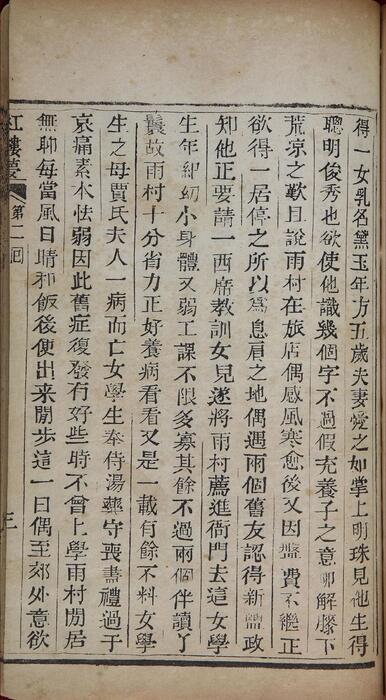 得一女乳名黛玉年方五歲夫妻愛之如掌上明珠見他生得
聰明俊秀也欲使他識幾個字不過假充養子之意聊解膝下
荒凉之歎且說雨村在旅店偶感風寒愈後又因盤費不繼正
欲得一居停之所以爲息肩之地偶遇兩個舊友認得新鹽政
知他正要請一西席教訓女兒遂將雨村薦進衙門去這女學
生年紀幼小身體又弱工課不限多寡其餘不過兩個伴讀丫
鬟故雨村十分省力正好養病看看又是一載有餘不料女學
生之母賈氏夫人一病而亡女學生奉侍湯藥守喪盡禮過于
哀痛素本怯弱因此舊症復發有好些時不曾上學雨村閒居
無聊每當風日晴和飯後便出來閒步這一日偶至郊外意欲
紅樓夢 第二囘 三